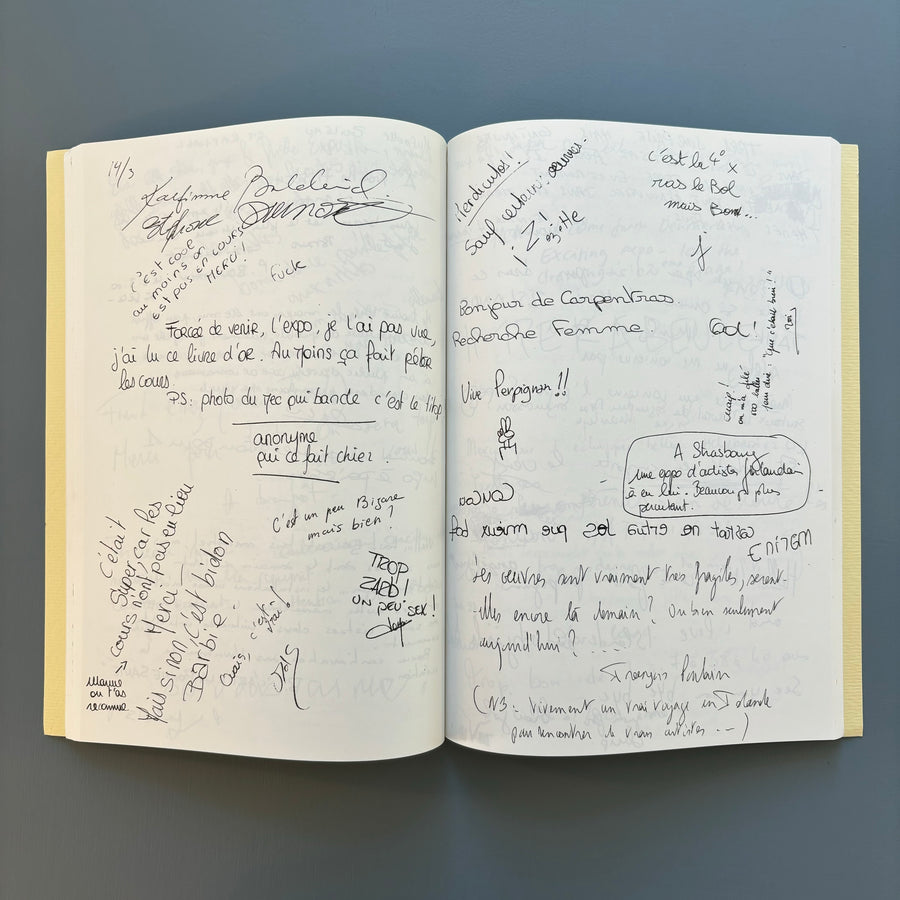 14/3
c'est cool
au moins on
est pas en cours
MERCI!
Fuck
Forcée de venir, l'expo, je l'ai pas vue,
j'ai lu ce livre d'or. Au moins ça fait péter
les cours.
PS: photo du mec qui bande c'est le titop
anonyme
qui ce fait chier.
C'est un peu Bizare
mais bien?
TROP
ZARB!
UN PEU SEX!
C'était
Super, car les
cours n'ont pas eu lieu
Merci
Mais sinon, c'est bidon
Barbie.
Ouais, c'est
vrai!
Manue
on t'as
reconnue
Merdicutos!
Sauf certain:
¡ Z!
c'est la 4° x
ras le Bol
mais Bon...
Bonjour de Carpentras.
Recherche Femme.
God!
Vive Perpignan!!
Ouaip!
on m'a
pour dire: "que c'était bien!"
A Strasbourg
une expo d'artistes Irlandais
à eu lieu. Beaucoup plus
percutant.
EMINEM
Les œuvres sont vraiment très fragiles, seront-
-elles encore là demain? Ou bien seulement
aujourd'hui? ....
François
(NB: vivement un vrai voyage en Irlande
pour rencontrer de vrais artistes --)